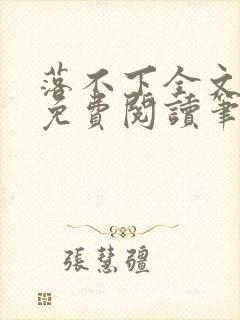 落不下全文
免費閱讀筆
張慧疆